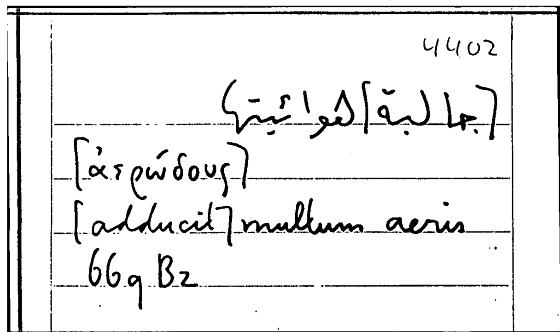 4402
[جالبة] هوائية
[ἀερώδους]
[adducit] multum aeris
66q B2